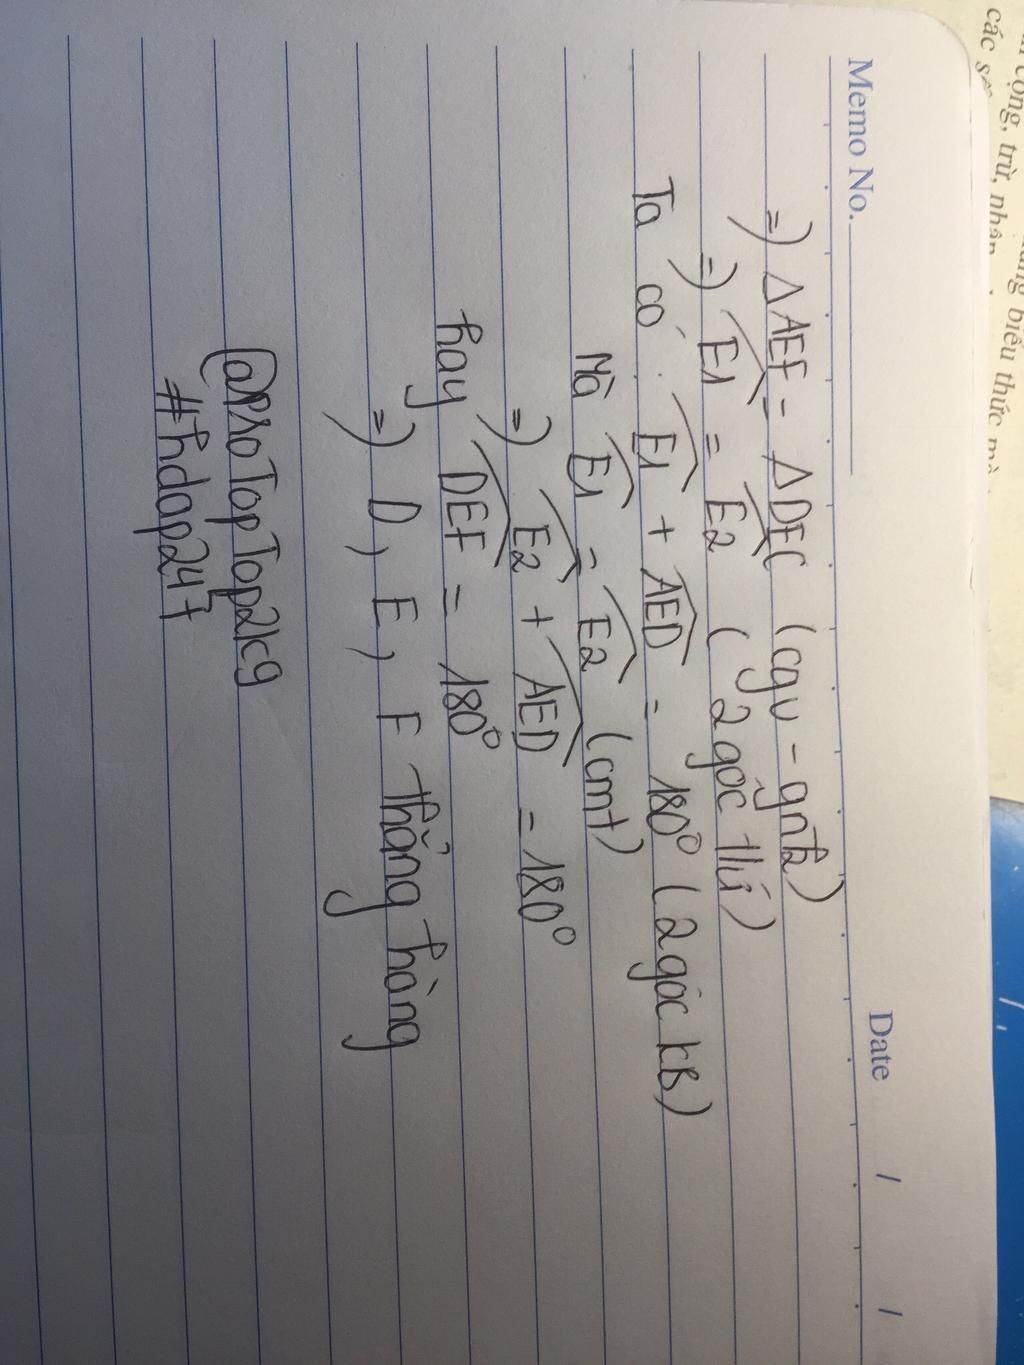 các số
cộng, trừ, nhân
biểu thức mà
Memo No.
Date / /
=) ΔAEF = ΔDEC (cgv - gnhọn)
=) E1 = E2 (2 góc t/ứ)
Ta có: E1 + AED = 180° (2 góc kB)
Mà E1 = E2 (cmt)
=) E2 + AED = 180°
hay DEF = 180°
=) D, E, F thẳng hàng
@ProTopTop2k9
#hdap247